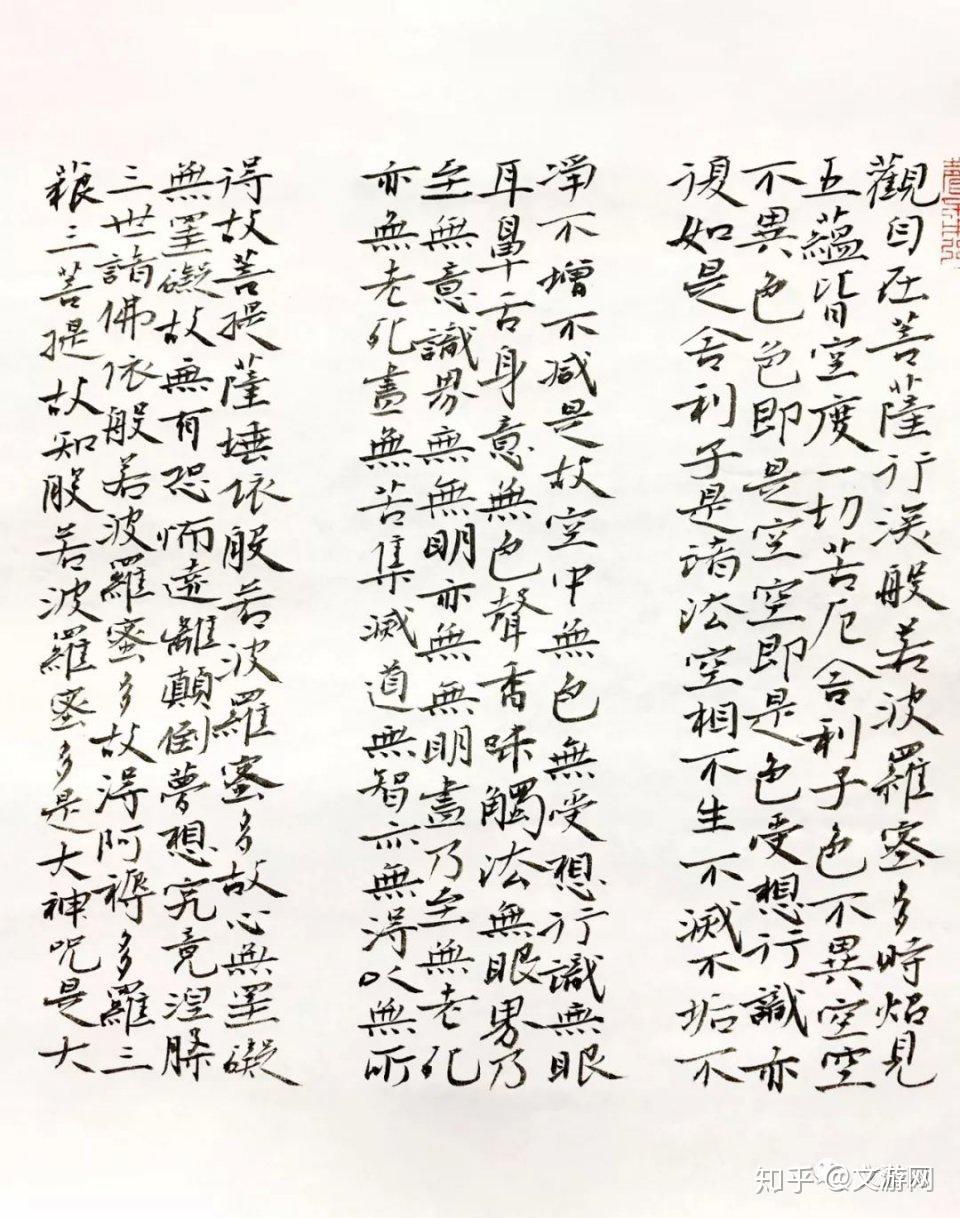 觀自在菩薩行深般若波羅蜜多時焰見
五蘊皆空度一切苦厄舍利子色不異空空
不異色色即是空空即是色受想行識亦
復如是舍利子是諸法空相不生不滅不垢不
淨不增不減是故空中無色無受想行識無眼
耳鼻舌身意無色聲香味觸法無眼界乃
至無意識界無無明亦無無明盡乃至無老死
亦無老死盡無苦集滅道無智亦無得以無所
得故菩提薩埵依般若波羅蜜多故心無罣礙
無罣礙故無有恐怖遠離顛倒夢想究竟涅槃
三世諸佛依般若波羅蜜多故得阿耨多羅三
藐三菩提故知般若波羅蜜多是大神呪是大
知乎 @文游网